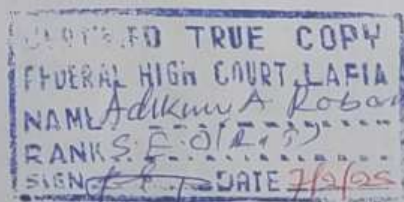 CERTIFIED TRUE COPY
FEDERAL HIGH COURT, LAFIA
NAME Adikwu A
RANK S.E.O
SIGN DATE 7/2/25